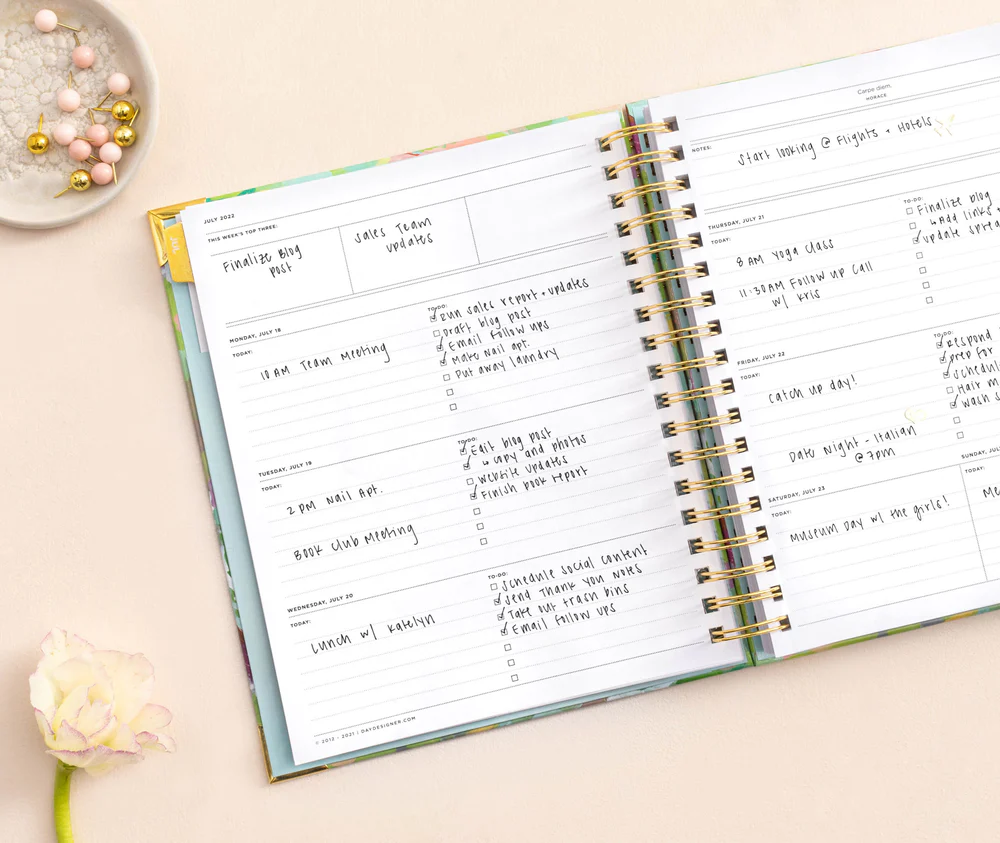 JULY 2022
THIS WEEK'S TOP THREE:
Finalize Blog
post
Sales Team
updates
MONDAY, JULY 18
TODAY:
10 AM Team Meeting
TO-DO:
Run sales report + updates
Draft blog post
Email Follow ups
Make Nail apt.
Put away laundry
TUESDAY, JULY 19
TODAY:
2 PM Nail Apt.
BOOK Club Meeting
TO-DO:
Edit blog post
↳ copy and photos
Website updates
Finish book report
WEDNESDAY, JULY 20
TODAY:
Lunch w/ Katelyn
TO-DO:
Schedule social content
Send Thank you Notes
Take out trash bins
Email Follow ups
© 2012 - 2021 | DAYDESIGNER.COM
Carpe diem.
HORACE
NOTES:
Start looking @ Flights + Hotels
THURSDAY, JULY 21
TODAY:
8 AM Yoga Class
11:30AM Follow up Call
w/ Kris
TO-DO:
Finalize blog
↳ Add links +
update
FRIDAY, JULY 22
TODAY:
Catch up day!
Date Night - Italian
@ 7pm
TO-DO:
Respond
prep for
Hair
wash
SATURDAY, JULY 23
TODAY:
Museum Day w/ the girls!
SUNDAY,
TODAY: